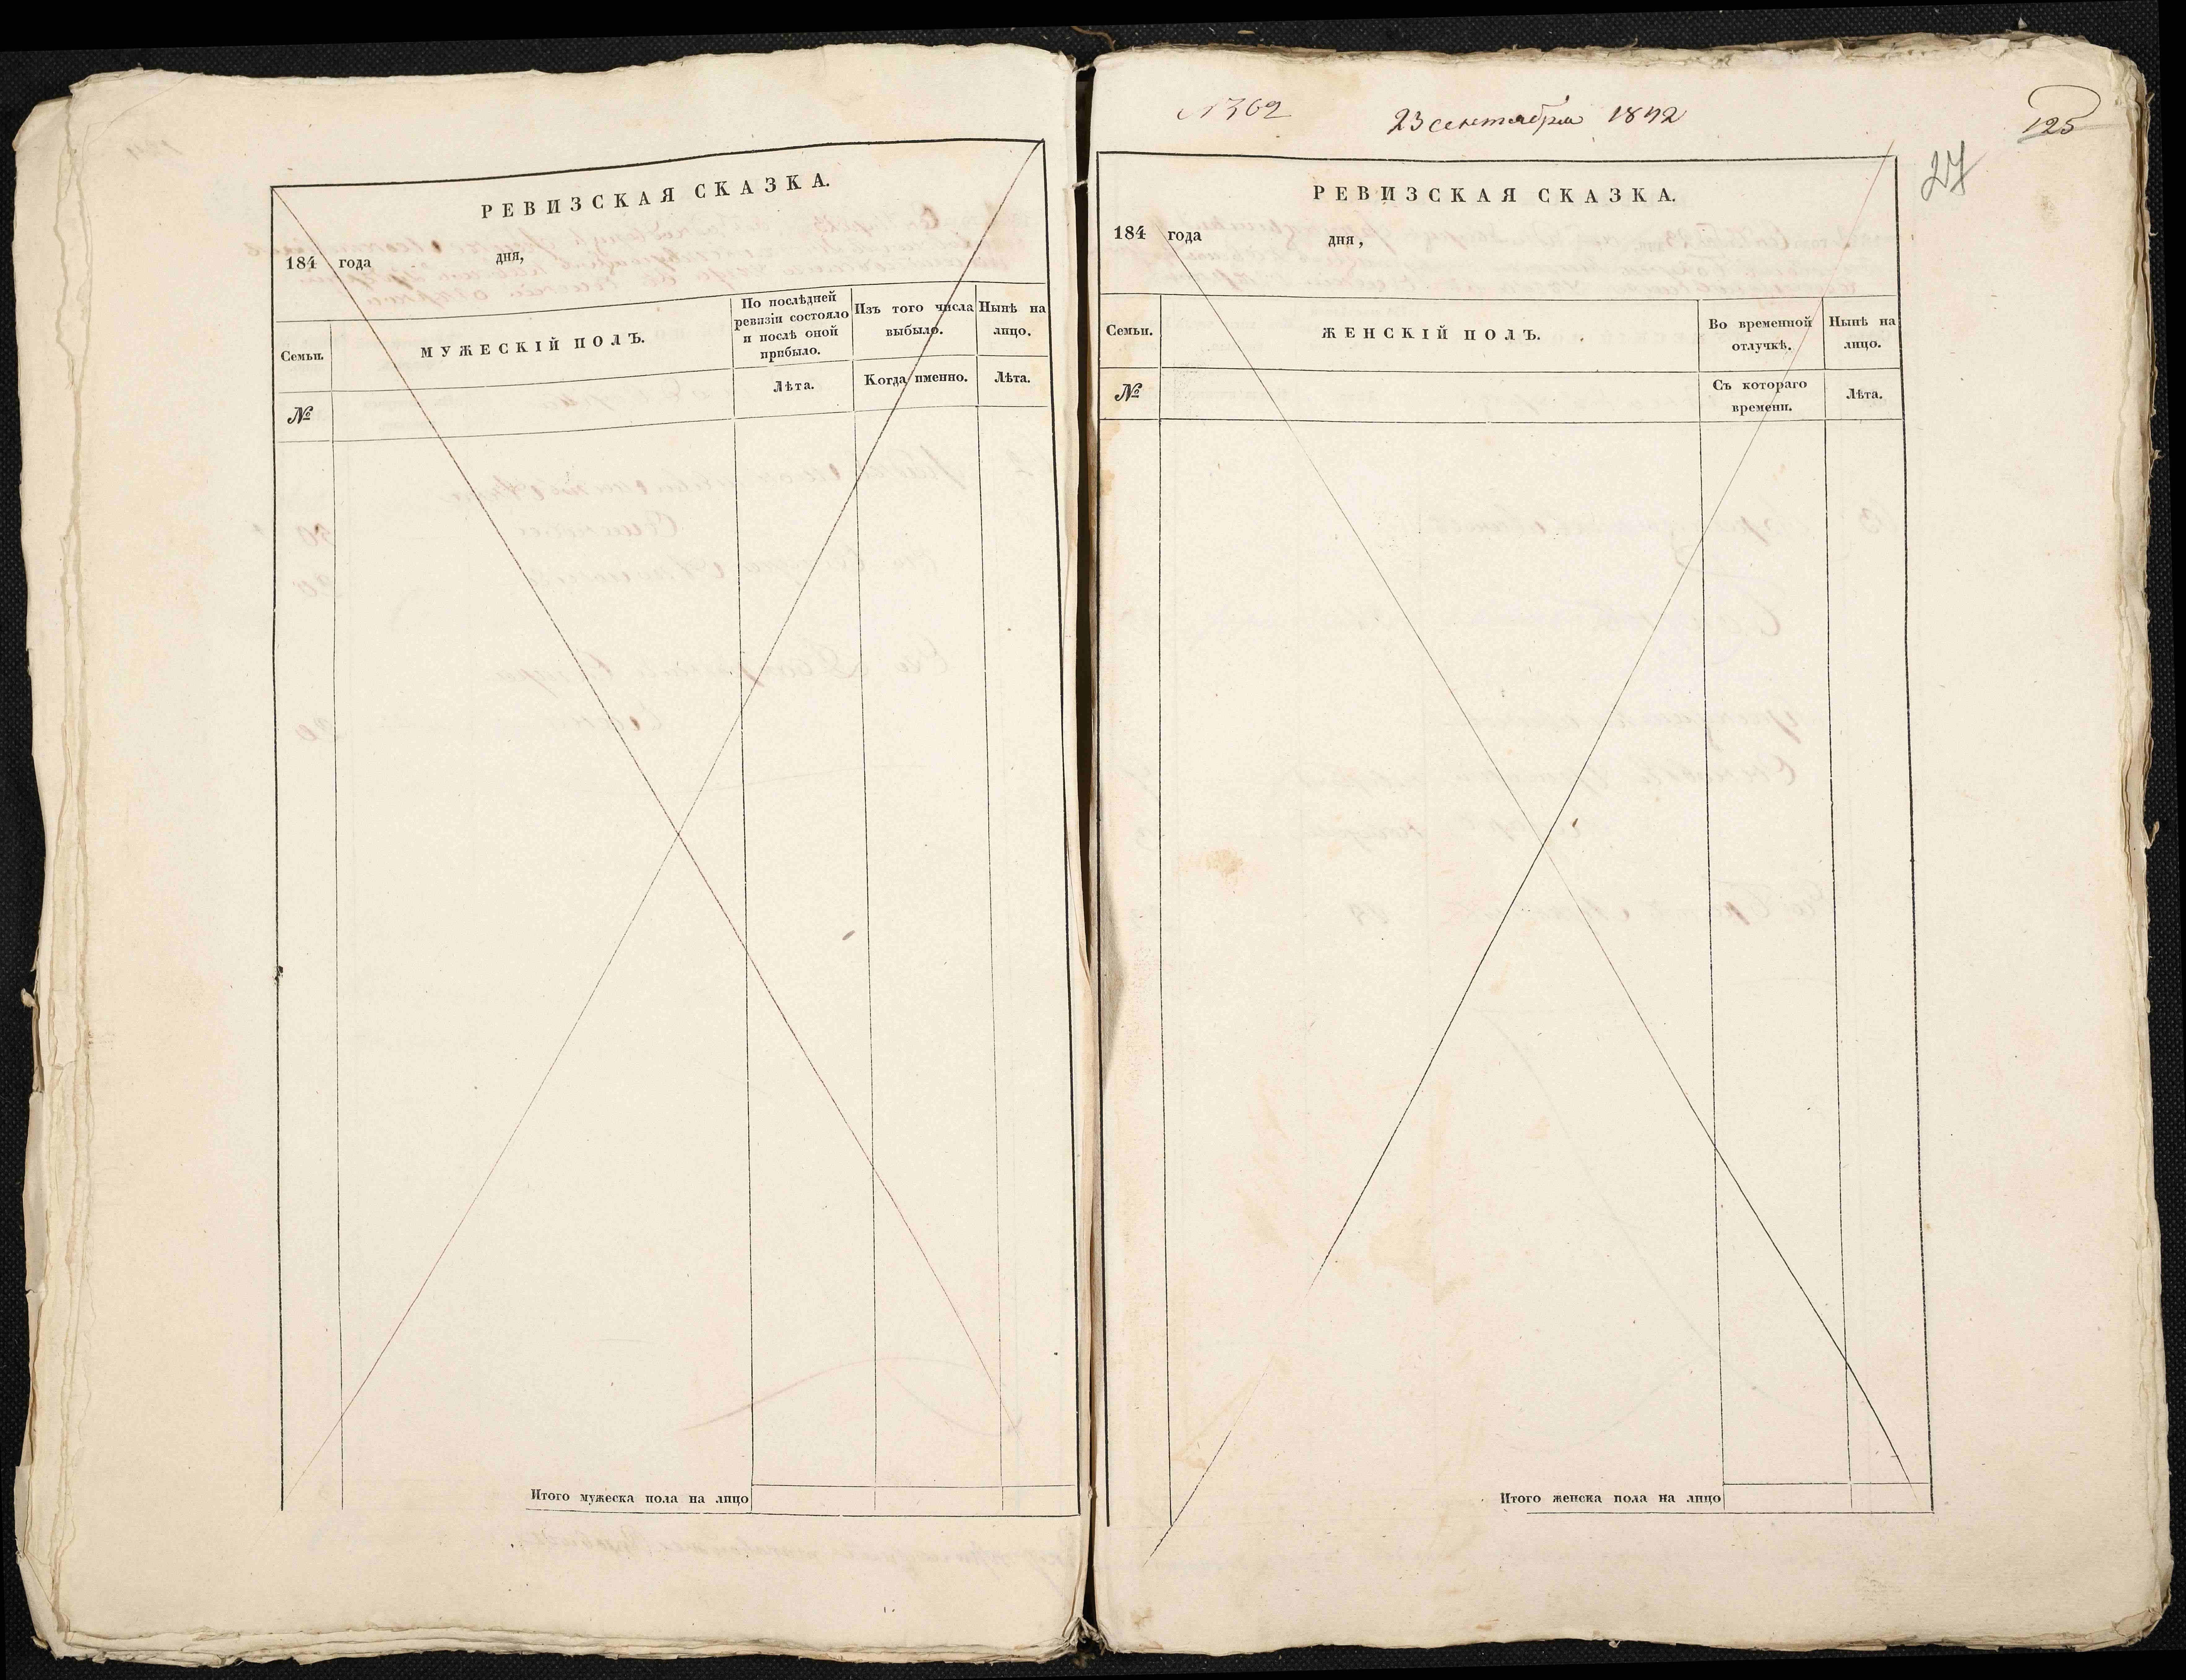 РЕВИЗСКАЯ СКАЗКА.
184 года дня,
Семьи.
МУЖЕСКІЙ ПОЛЪ.
По послѣдней ревизіи состояло и послѣ оной прибыло.
Изъ того числа выбыло.
Нынѣ на лицо.
№
Лѣта.
Когда именно.
Лѣта.
Итого мужеска пола на лицо
№ 362
23 сентября 1842
125
27
РЕВИЗСКАЯ СКАЗКА.
184 года дня,
Семьи.
ЖЕНСКІЙ ПОЛЪ.
Во временной отлучкѣ.
Нынѣ на лицо.
№
Съ котораго времени.
Лѣта.
Итого женска пола на лицо